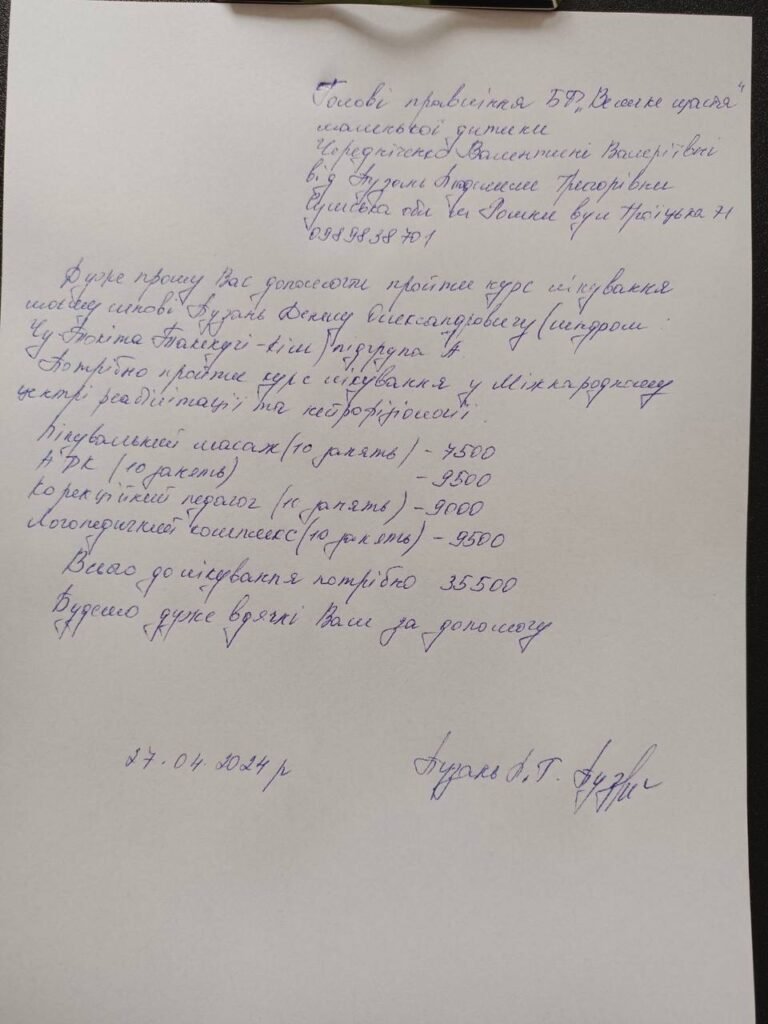 Голові правління БФ „Велике щастя"
маленької дитини
Чередніченко Валентині Валеріївні
від Пузань Григорівни
Сумська обл м Ромни вул Троїцька 71
0989838701
Дуже прошу Вас допомогти пройти курс лікування
моєму синові Пузань Денису Олександровичу (синдром
Чу-Токіта Такенучі-Кім) підгрупа А.
Потрібно пройти курс лікування у Міжнародному
центрі реабілітації та нейрофізіології.
Лікувальний масаж (10 занять) - 7500
АФК (10 занять) - 9500
Корекційний педагог (10 занять) - 9000
Логопедичний комплекс (10 занять) - 9500
Всього до лікування потрібно 35500
Будемо дуже вдячні Вам за допомогу
27.04.2024 р Пузань Г.